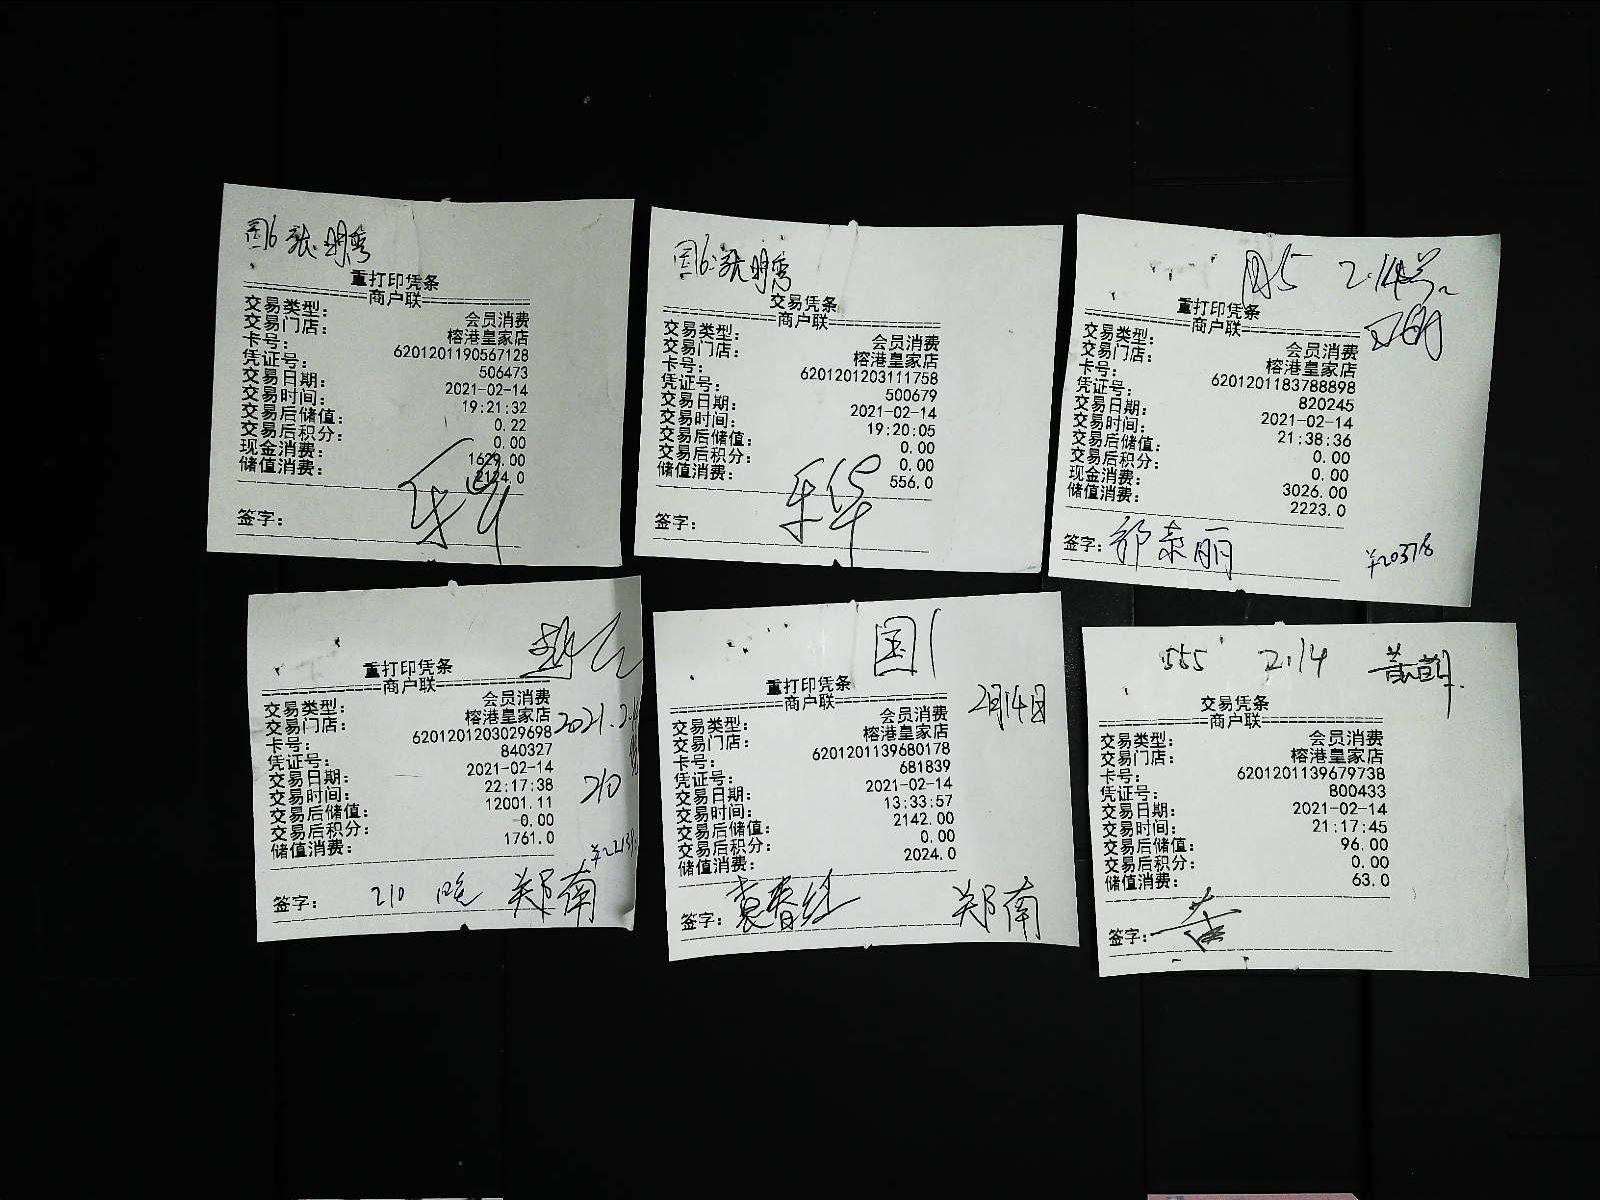 国6 张明秀
重打印凭条
商户联
交易类型: 会员消费
交易门店: 榕港皇家店
卡号: 6201201190567128
凭证号: 506473
交易日期: 2021-02-14
交易时间: 19:21:32
交易后储值: 0.22
交易后积分: 0.00
现金消费: 1629.00
储值消费: 2124.0
签字:
国6 张明秀
交易凭条
商户联
交易类型: 会员消费
交易门店: 榕港皇家店
卡号: 6201201203111758
凭证号: 500679
交易日期: 2021-02-14
交易时间: 19:20:05
交易后储值: 0.00
交易后积分: 0.00
储值消费: 556.0
签字:
国5 2.14
重打印凭条
商户联
交易类型: 会员消费
交易门店: 榕港皇家店
卡号: 6201201183788898
凭证号: 820245
交易日期: 2021-02-14
交易时间: 21:38:36
交易后储值: 0.00
交易后积分: 0.00
现金消费: 3026.00
储值消费: 2223.0
签字: 郭泰丽
重打印凭条
商户联
交易类型: 会员消费
交易门店: 榕港皇家店
卡号: 6201201203029698
凭证号: 840327
交易日期: 2021-02-14
交易时间: 22:17:38
交易后储值: 12001.11
交易后积分: -0.00
储值消费: 1761.0
210
签字: 210 晚 郑南
国1
2月14日
重打印凭条
商户联
交易类型: 会员消费
交易门店: 榕港皇家店
卡号: 6201201139680178
凭证号: 681839
交易日期: 2021-02-14
交易时间: 13:33:57
交易后储值: 2142.00
交易后积分: 0.00
储值消费: 2024.0
签字: 袁春红 郑南
555 2.14
交易凭条
商户联
交易类型: 会员消费
交易门店: 榕港皇家店
卡号: 6201201139679738
凭证号: 800433
交易日期: 2021-02-14
交易时间: 21:17:45
交易后储值: 96.00
交易后积分: 0.00
储值消费: 63.0
签字: